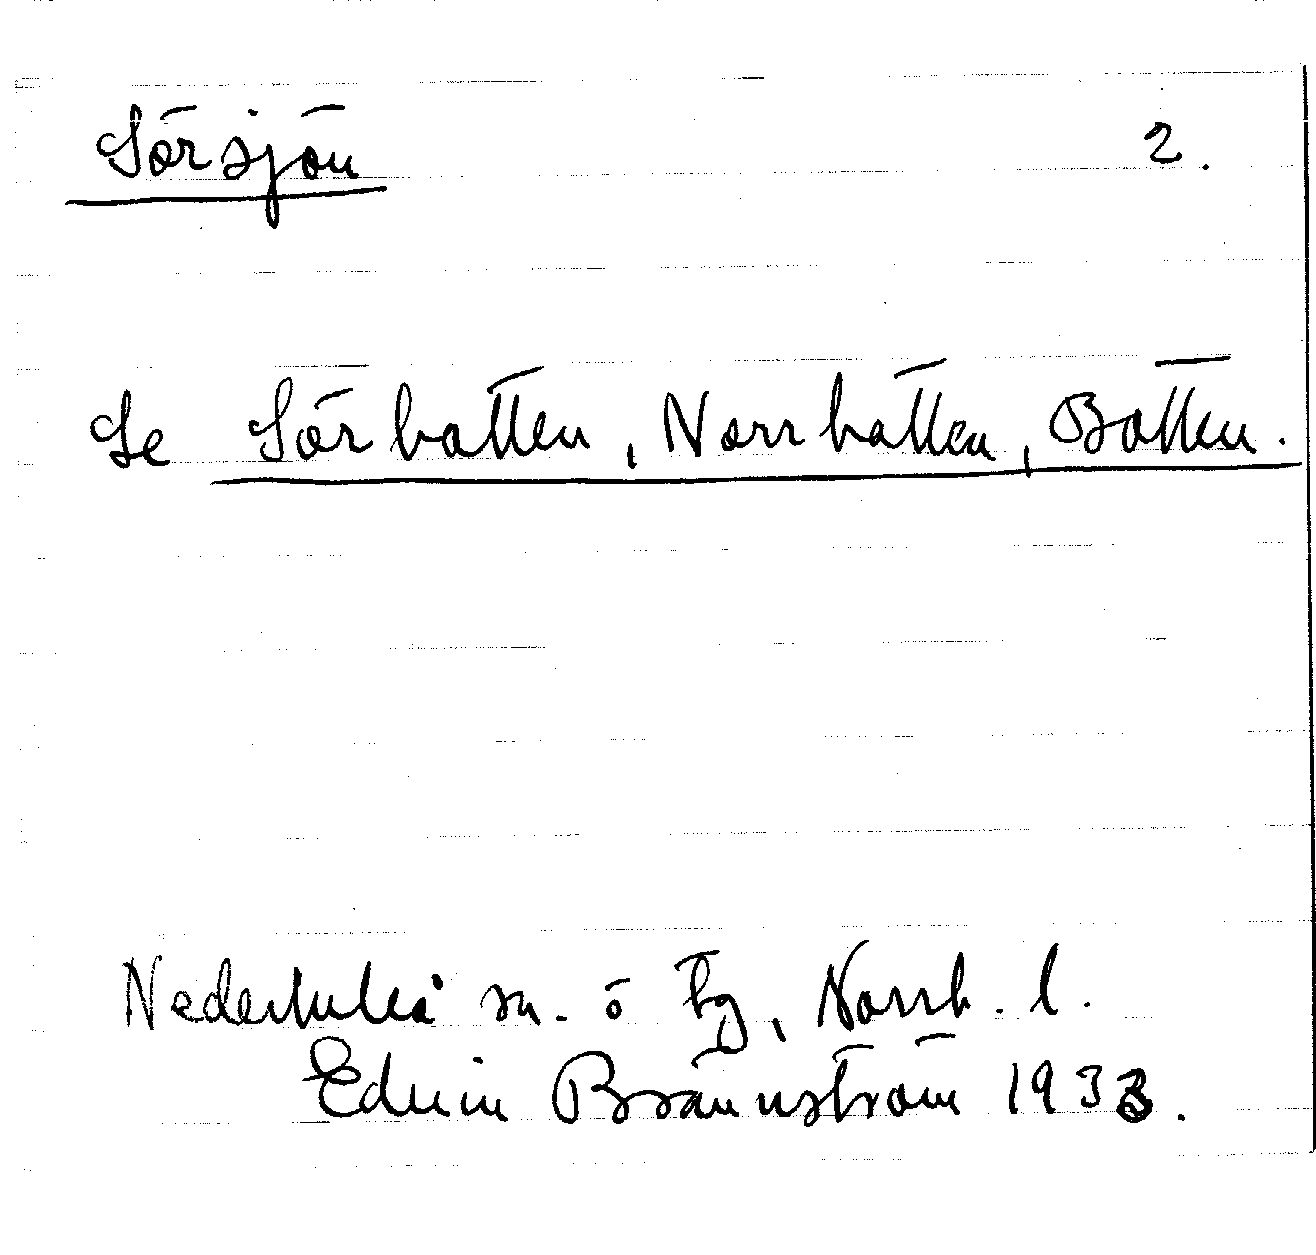 Sörsjön 2.
Se Sörbatten, Norrbatten, Botten.
Nederluleå sn. o tg, Norrb. l.
Edvin Brännström 1933.